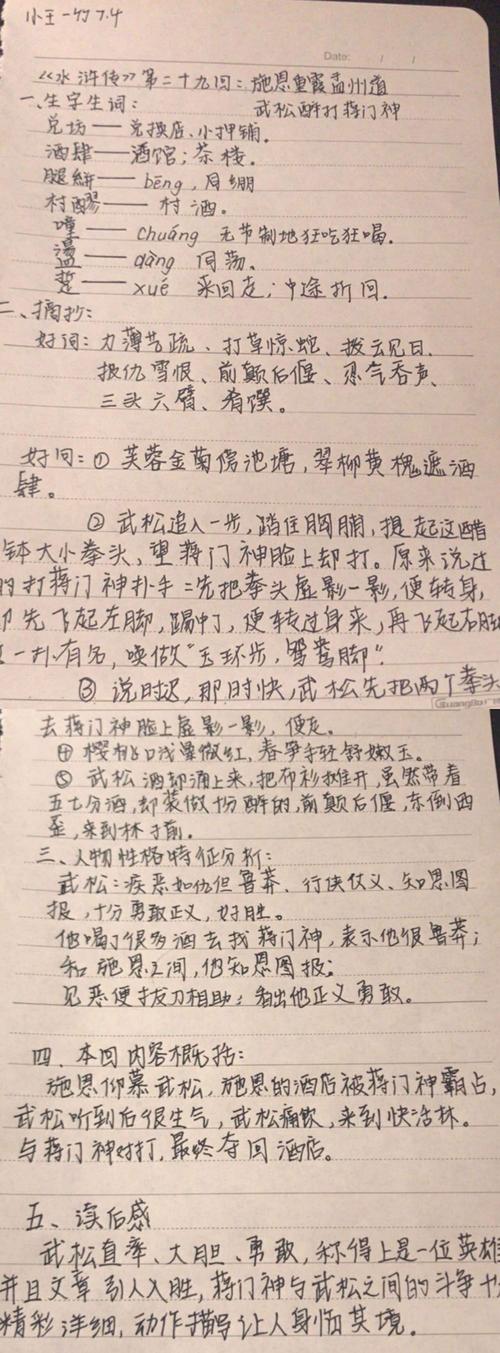 小王一竹 7.4
Date: / /
《水浒传》第二十九回：施恩重霸孟州道
武松醉打蒋门神
一、生字生词：
兑坊——兑换店、小押铺。
酒肆——酒馆；茶栈。
腿絣——bēng，同绷
村醪——村酒。
噇——chuáng 无节制地狂吃狂喝。
盪——dàng 同荡。
踅——xué 来回走；中途折回。
二、摘抄：
好词：力薄艺疏、打草惊蛇、拨云见日、
报仇雪恨、前颠后偃、忍气吞声、
三头六臂、肴馔。
好句：① 芙蓉金菊傍池塘，翠柳黄槐遮酒
肆。
② 武松追入一步，踏住胸脯，提起这醋
钵大小拳头，望蒋门神脸上却打。原来说过
的打蒋门神扑手：先把拳头虚影一影，便转身，
却先飞起左脚，踢中了，便转过身来，再飞起右脚
这一扑有名，唤做“玉环步，鸳鸯脚”。
③ 说时迟，那时快，武松先把两个拳头
去蒋门神脸上虚影一影，便走。
④ 樱桃口浅晕微红，春笋手轻舒嫩玉。
⑤ 武松酒却涌上来，把布衫摊开，虽然带着
五七分酒，却装做十分醉的，前颠后偃，东倒西
歪，来到林子前。
三、人物性格特征分析：
武松：疾恶如仇但鲁莽、行侠仗义、知恩图
报，十分勇敢正义，好胜。
他喝了很多酒去找蒋门神，表示他很鲁莽；
和施恩之间，他知恩图报；
见恶便拔刀相助；看出他正义勇敢。
四、本回内容概括：
施恩仰慕武松，施恩的酒店被蒋门神霸占，
武松听到后很生气，武松痛饮，来到快活林。
与蒋门神对打，最终夺回酒店。
五、读后感
武松直率、大胆、勇敢，称得上是一位英雄
并且文章引人入胜，蒋门神与武松之间的斗争十分
精彩详细，动作描写让人身临其境。